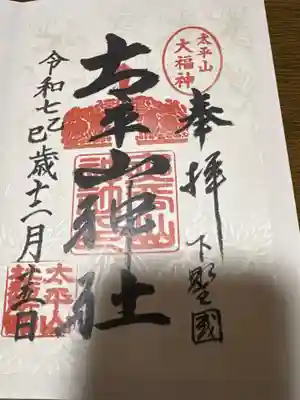 太平山
大福神
奉拝
下野國
太平山神社
令和七乙巳歳十二月十五日
太平山